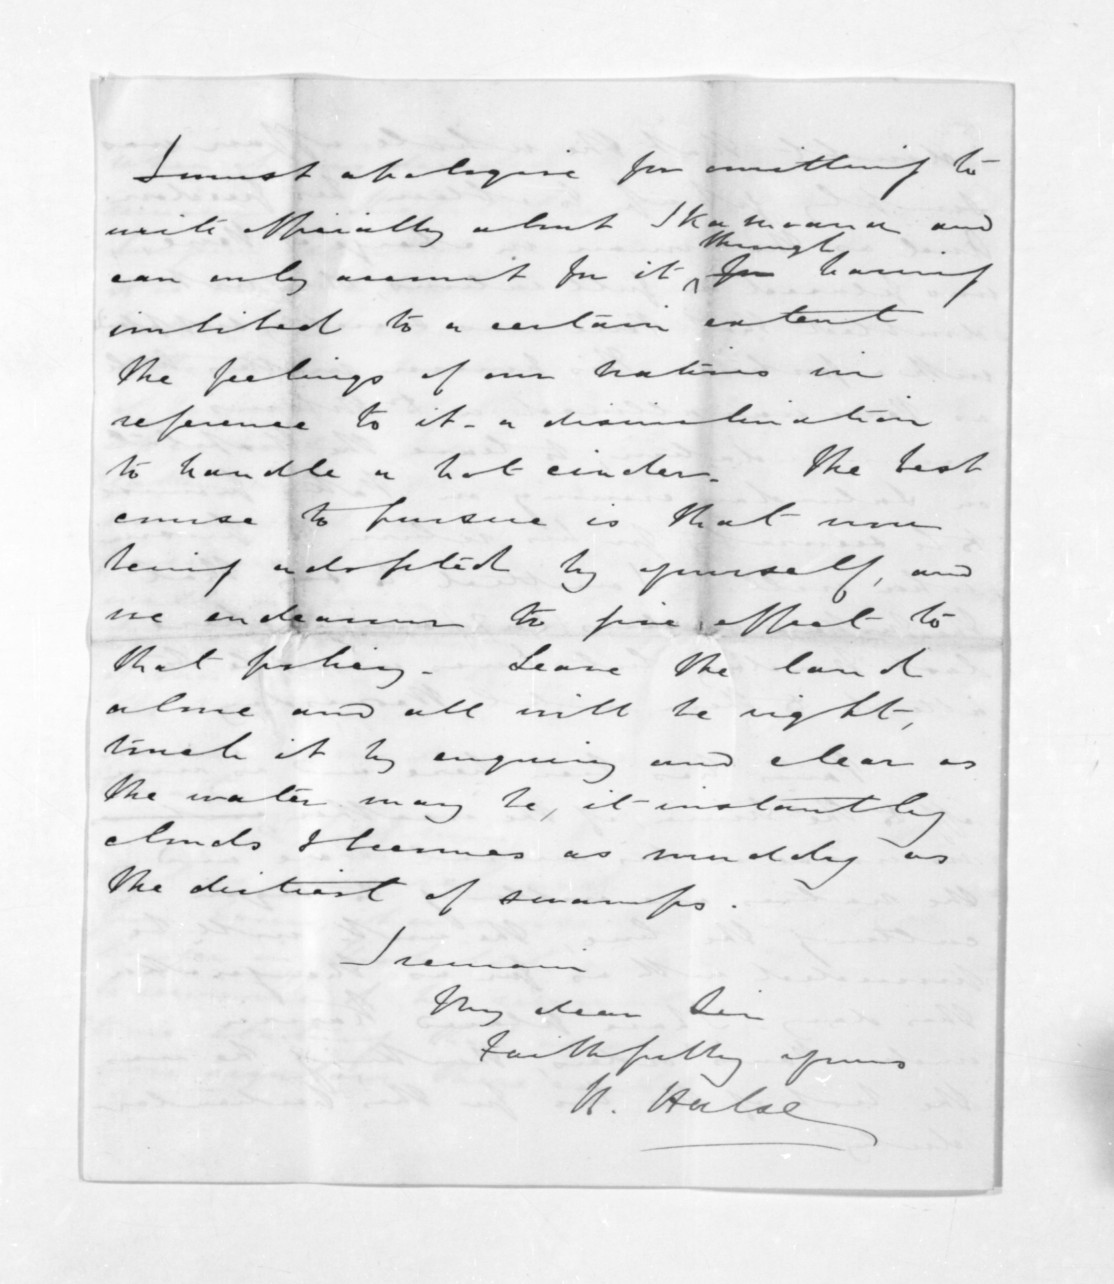 I must apologise for omitting to
write officially about Skamoana and
through
can only account for it, for having
imbibed to a certain extent
the feelings of our natives in
reference to it - a disinclination
to handle a hot cinder. The best
course to pursue is that now
being adopted by yourself, and
we endeavour to give effect to
that policy - Leave the land
alone and all will be right,
touch it by enquiry and clear as
the water may be, it instantly
clouds & becomes as muddy as
the dirtiest of swamps.
I remain
My dear Sir
Faithfully yours
H. Halse